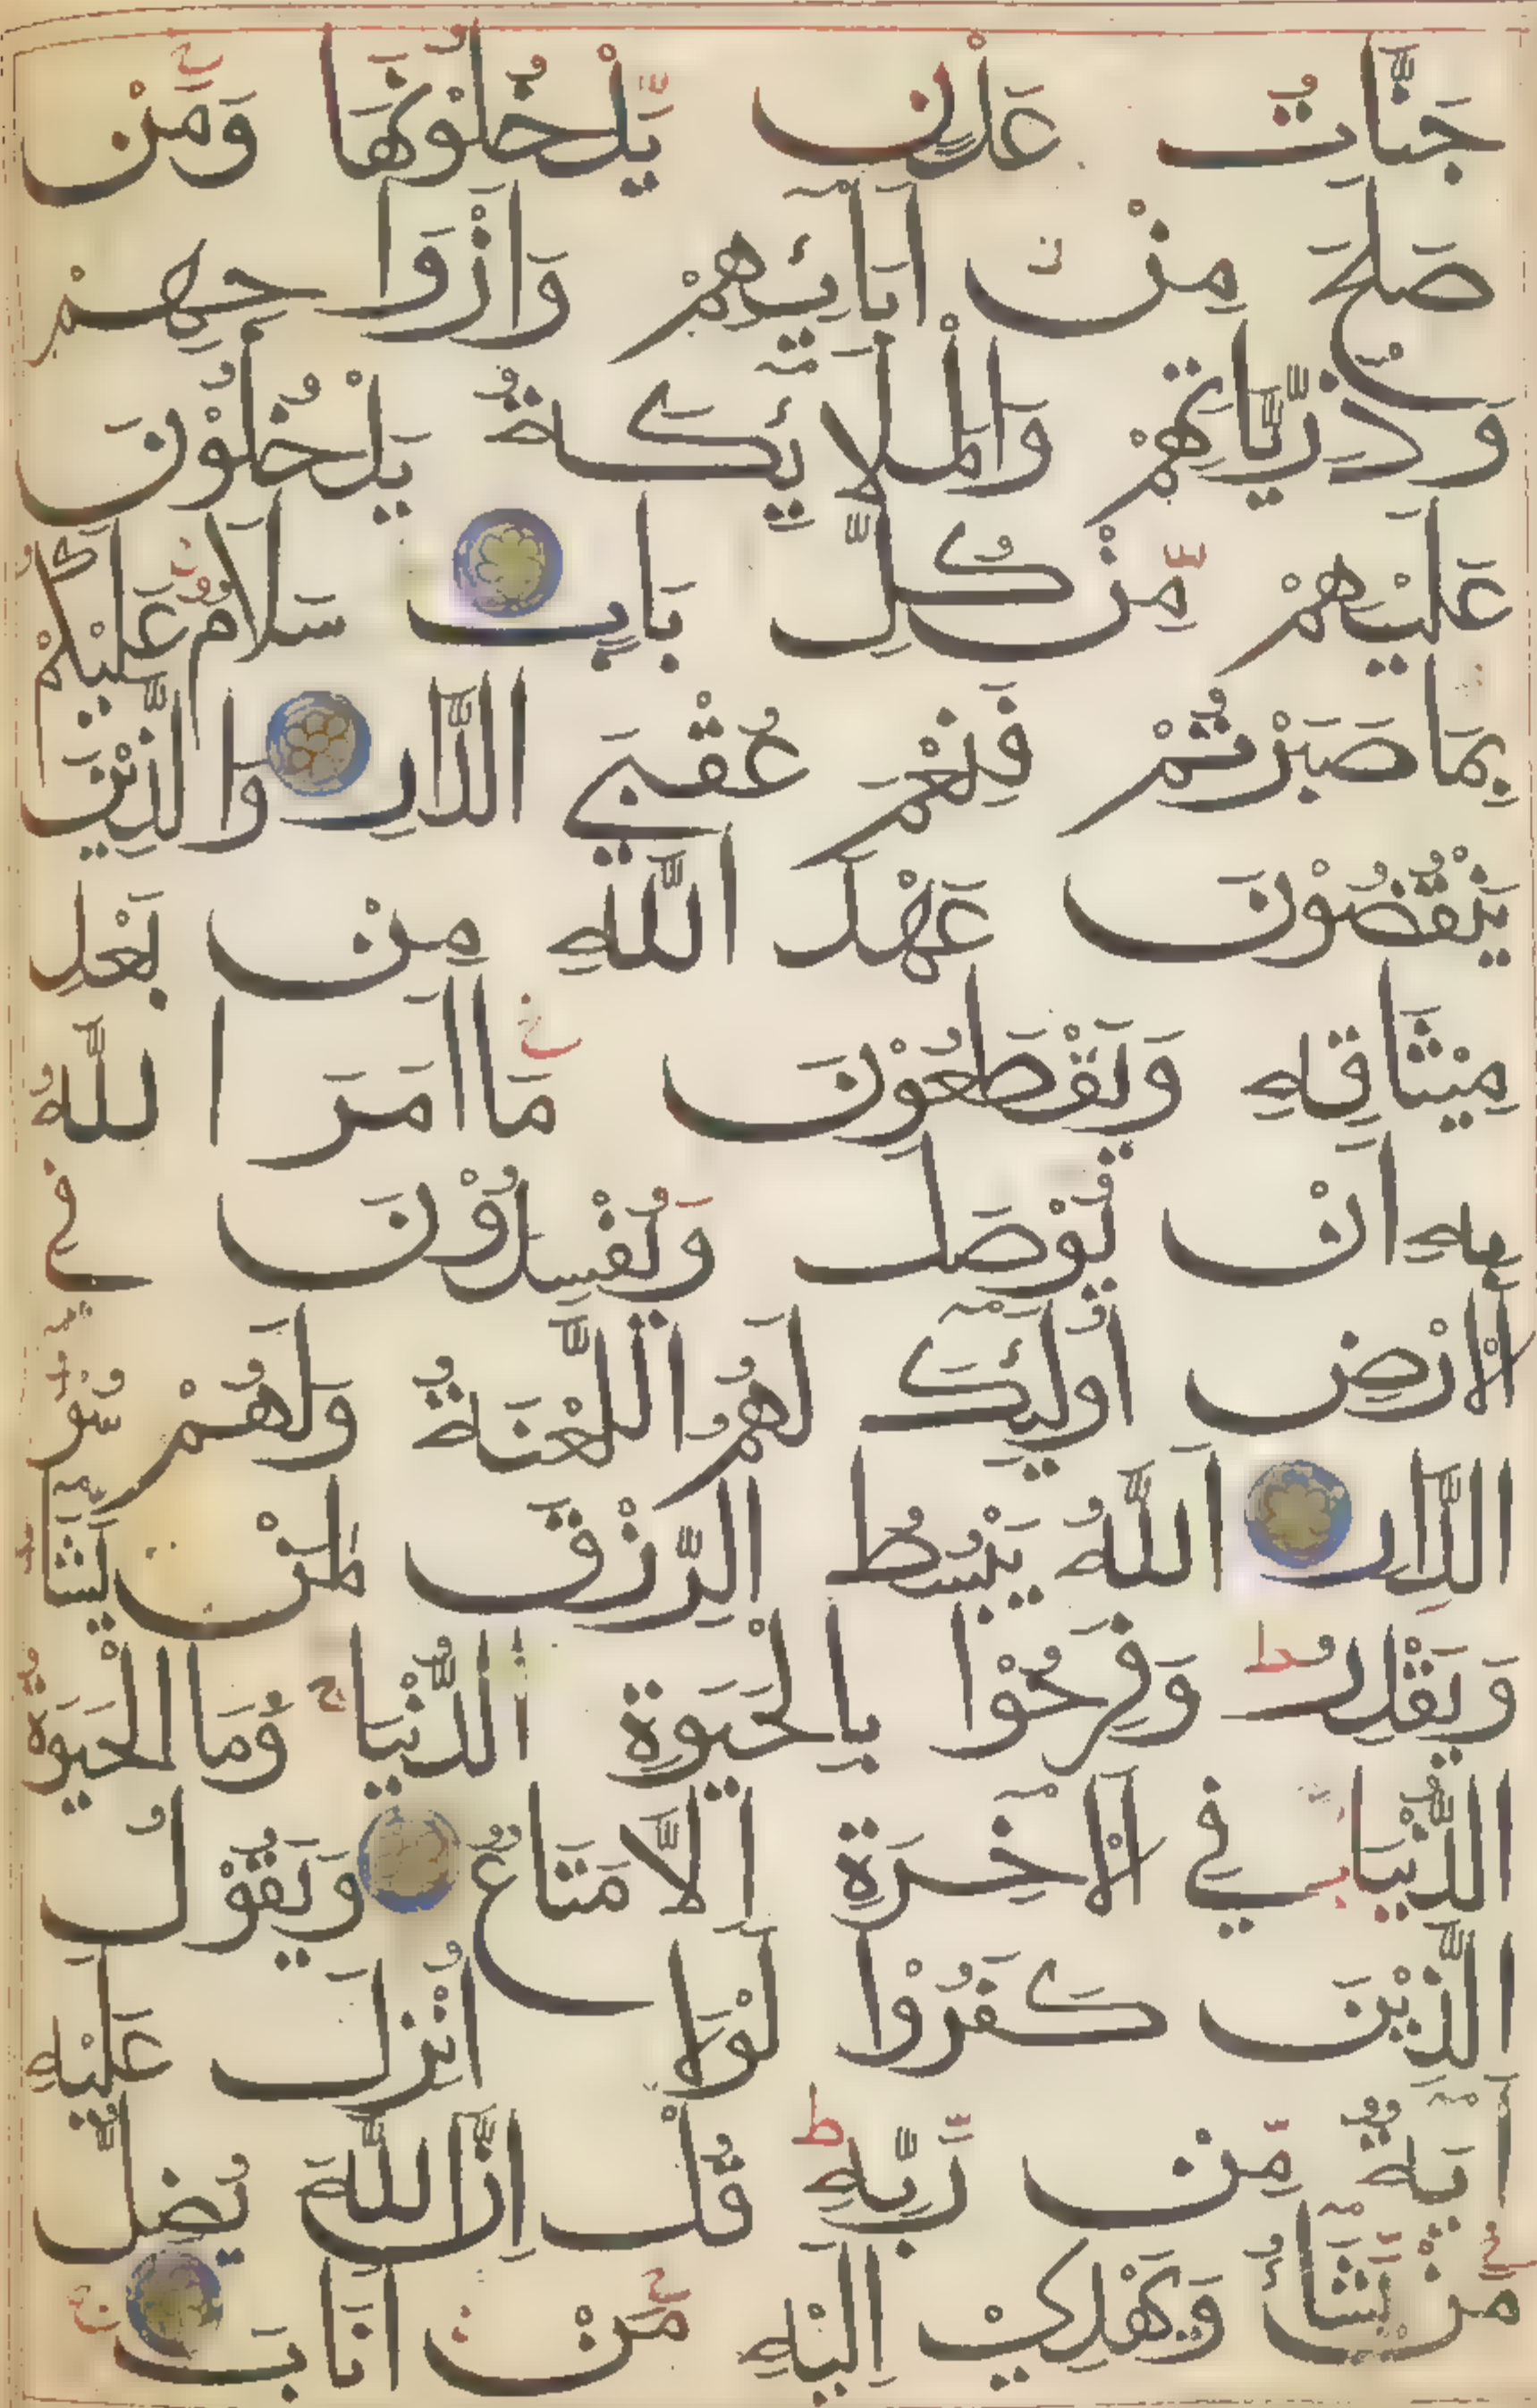 جَنَّاتُ عَدْنٍ يَّدْخُلُوْنَهَا وَمَنْ
صَلَحَ مِنْ اٰبَائِهِمْ وَاَزْوَاجِهِمْ
وَذُرِّيَّاتِهِمْ وَالْمَلَائِكَةُ يَدْخُلُوْنَ
عَلَيْهِمْ مِّنْ كُلِّ بَابٍ سَلَامٌ عَلَيْكُمْ
بِمَا صَبَرْتُمْ فَنِعْمَ عُقْبَى الدَّارِ وَالَّذِيْنَ
يَنْقُضُوْنَ عَهْدَ اللَّهِ مِنْ بَعْدِ
مِيْثَاقِهِ وَيَقْطَعُوْنَ مَا اَمَرَ اللَّهُ
بِهِ اَنْ يُوْصَلَ وَيُفْسِدُوْنَ فِي
الْاَرْضِ اُولٰئِكَ لَهُمُ اللَّعْنَةُ وَلَهُمْ سُوْءُ
الدَّارِ اَللَّهُ يَبْسُطُ الرِّزْقَ لِمَنْ يَشَاءُ
وَيَقْدِرُ ط وَفَرِحُوْا بِالْحَيٰوةِ الدُّنْيَا وَمَا الْحَيٰوةُ
الدُّنْيَا فِي الْاٰخِرَةِ اِلَّا مَتَاعٌ وَيَقُوْلُ
الَّذِيْنَ كَفَرُوْا لَوْلَا اُنْزِلَ عَلَيْهِ
اٰيَةٌ مِّنْ رَّبِّهِ ط قُلْ اِنَّ اللَّهَ يُضِلُّ
مَنْ يَّشَاءُ وَيَهْدِيْ اِلَيْهِ مَنْ اَنَابَ